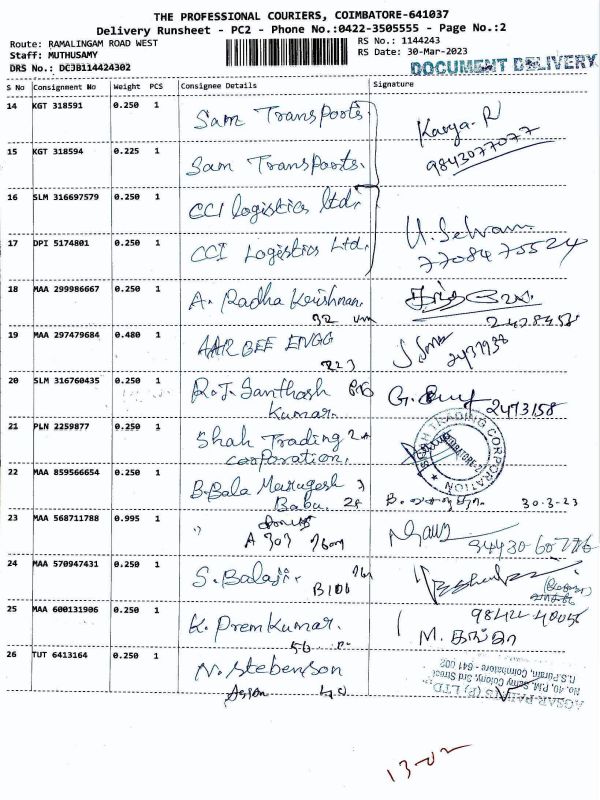 THE PROFESSIONAL COURIERS, COIMBATORE-641037
Delivery Runsheet - PC2 - Phone No.:0422-3505555 - Page No.:2
Route: RAMALINGAM ROAD WEST
RS No.: 1144243
Staff: MUTHUSAMY
RS Date: 30-Mar-2023
DRS No.: DC3B114424302
DOCUMENT DELIVERY
S No Consignment No Weight PCS Consignee Details Signature
14 KGT 318591 0.250 1 Sam Transports
Kavya. R
9843077077
15 KGT 318594 0.225 1 Sam Transports.
16 SLM 316697579 0.250 1 CCI logistics ltd.
U. Selvam
7708475524
17 DPI 5174801 0.250 1 CCI Logistics Ltd.
18 MAA 299986667 0.250 1 A. Radha Krishnan.
32
2428458
19 MAA 297479684 0.480 1 AAR BEE ENGG
2437938
20 SLM 316760435 0.250 1 R.J. Santhosh
Kumar.
2473158
21 PLN 2259877 0.250 1 Shah Trading
corporation.
SHAH TRADING CORPORATION
COIMBATORE-2
22 MAA 859566654 0.250 1 B. Bala Murugesh
Babu.
30-3-23
23 MAA 568711788 0.995 1 "
A 303
94430 60776
24 MAA 570947431 0.250 1 S. Balaji.
B106
25 MAA 600131906 0.250 1 K. Premkumar.
56
M. தங்கா
26 TUT 6413164 0.250 1 N. Stebenson
AGSAR PAINTS (P) LTD
No. 40, P.M. Samy Colony, 3rd Street
R.S.Puram, Coimbatore - 641 002
13-02